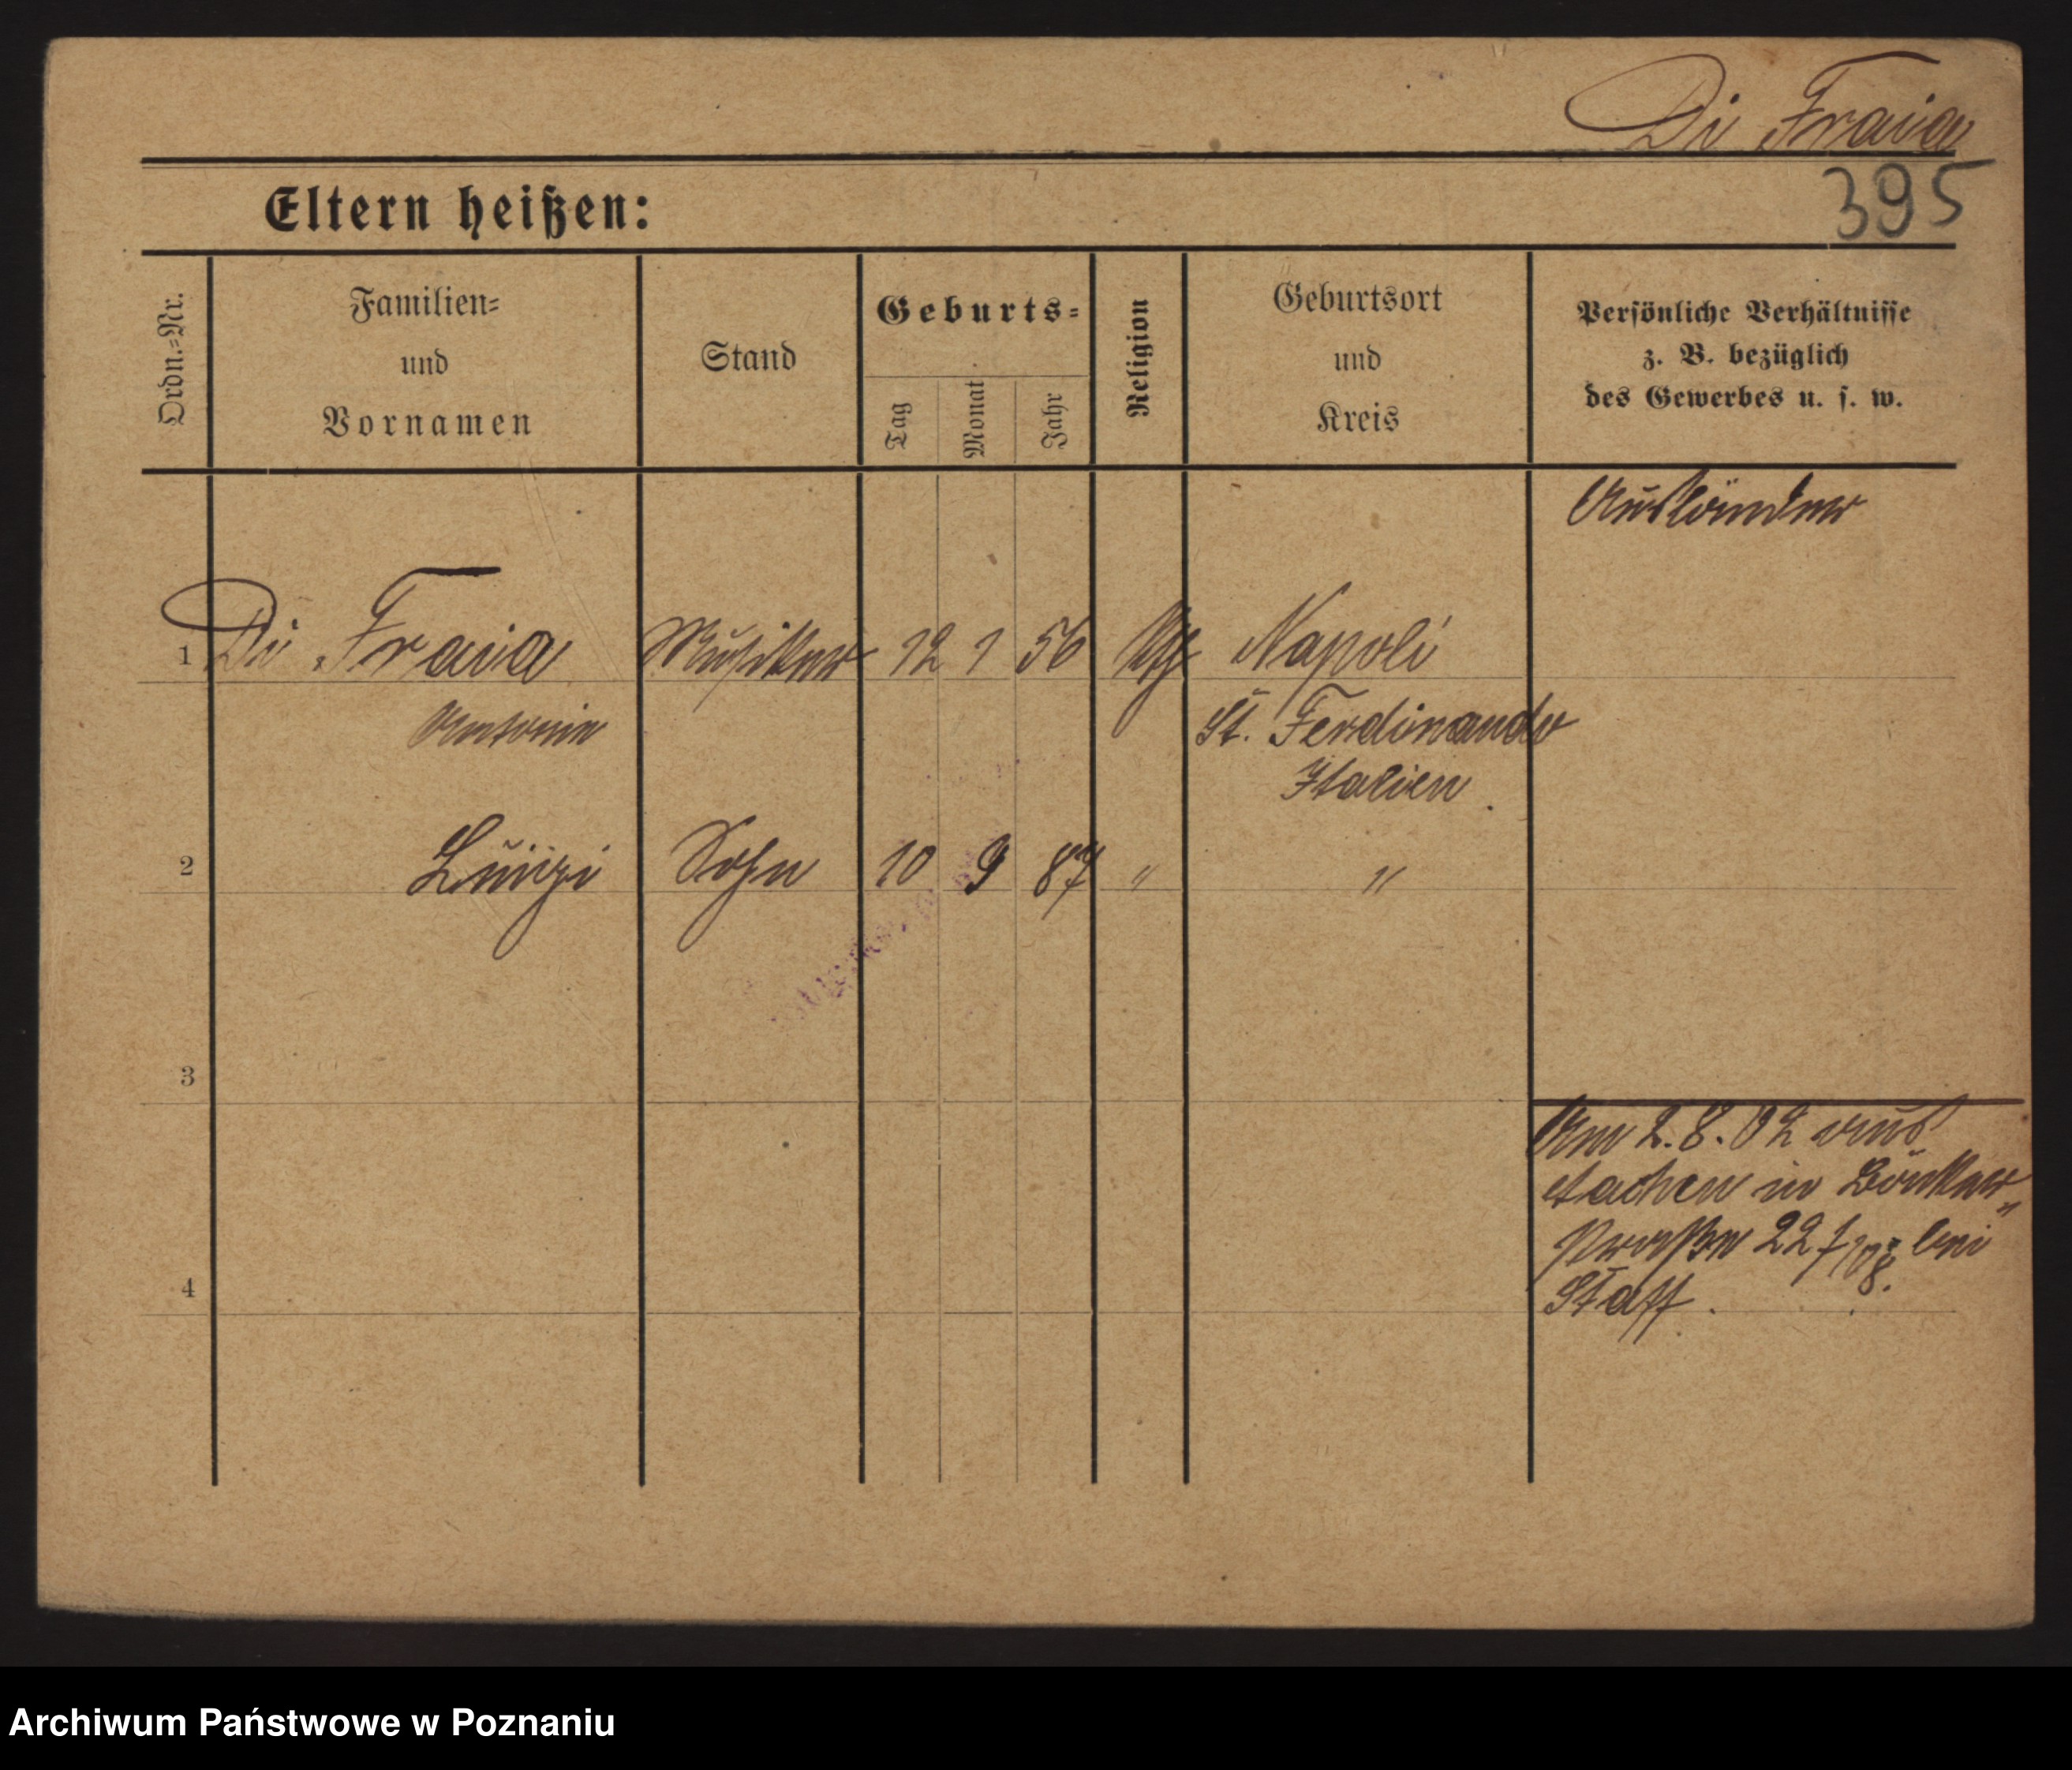 Di Fraia
395
Eltern heißen:
Ordn.=Nr.
Familien=
und
Vornamen
Stand
Geburts=
Tag
Monat
Jahr
Religion
Geburtsort
und
Kreis
Persönliche Verhältnisse
z. B. bezüglich
des Gewerbes u. s. w.
Ausländer
1 Di Fraia Musiker 12 1 56 Napoli
Antonio St. Ferdinando
Italien
2 Luigi Sohn 10 9 87 " "
3
4
Am 2.8.02 aus
Aachen in
22 bei
Staff.
Archiwum Państwowe w Poznaniu